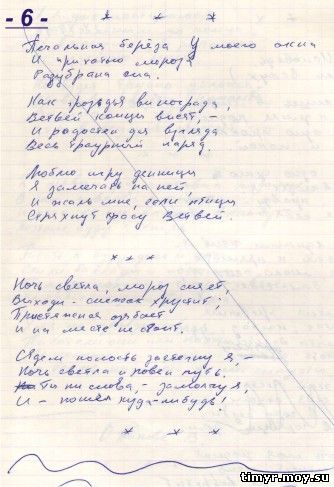 - 6 -
* * *
Печальная берёза у моего окна
И прихотью мороза
Разубрана она.
Как гроздья винограда,
Ветвей концы висят, -
И радостен для взгляда
Весь траурный наряд.
Люблю игру денницы
Я замечать на ней,
И жаль мне, если птицы
Стряхнут красу ветвей.
* * *
Ночь светла, мороз сияет,
Выходи - снежок хрустит;
Пристяжная озябает
И на месте не стоит.
Сядем, полость застегну я, -
Ночь светла и ровен путь.
Ты ни слова, - замолчу я,
И - пошёл куда-нибудь!
* * *
timyr.moy.su